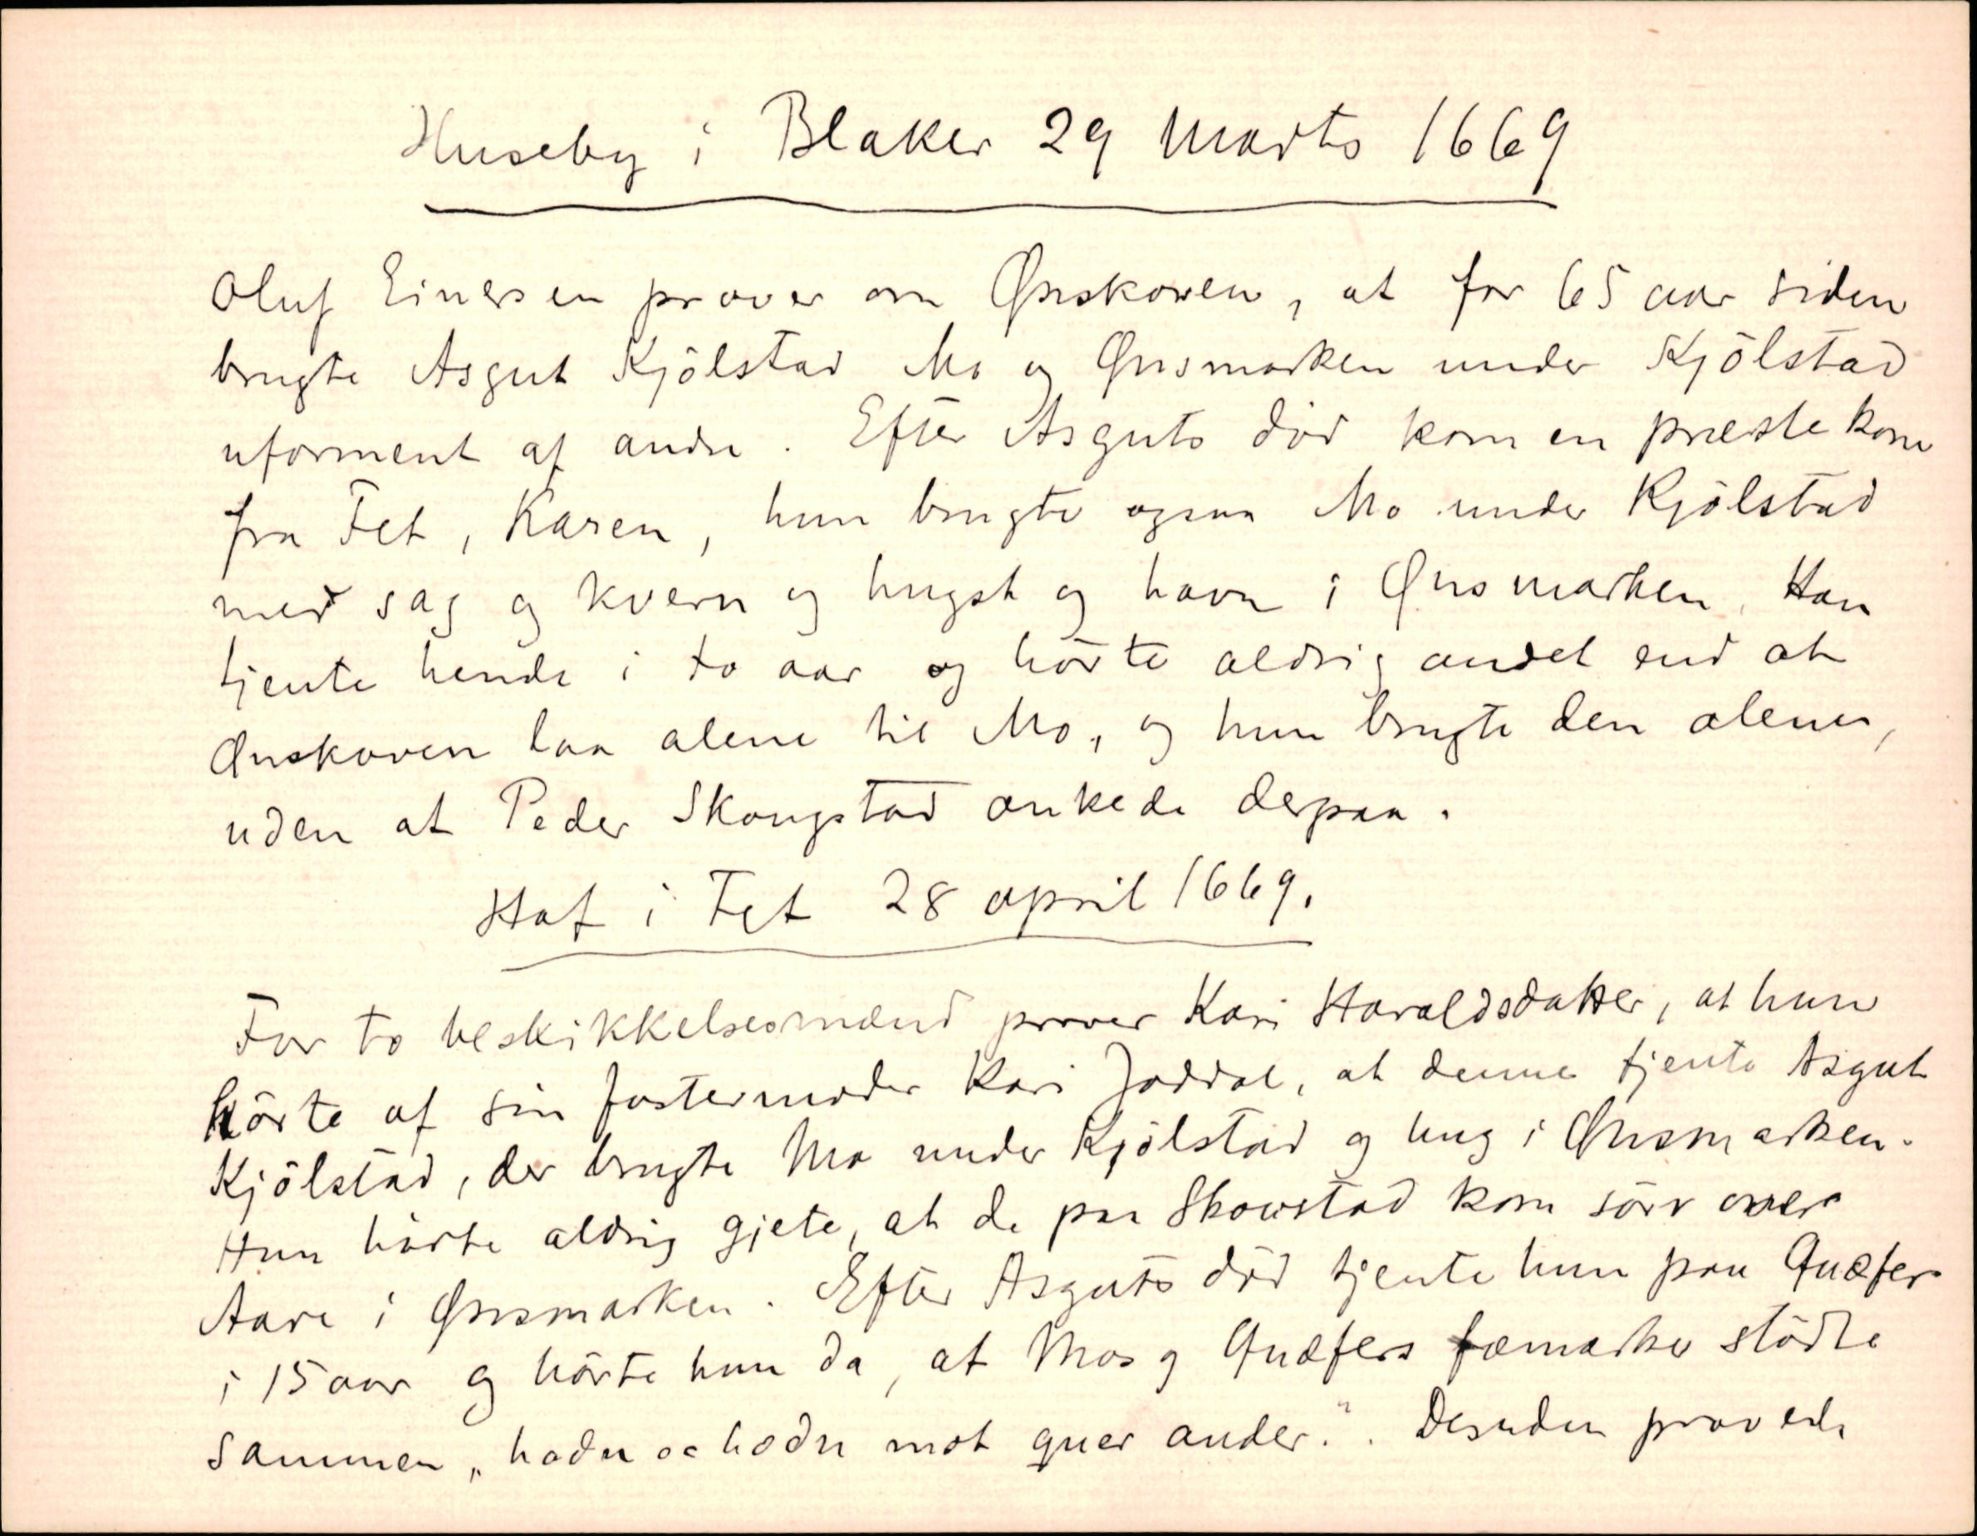 Huseby i Blaker 29 Marts 1669
Oluf Einersen prover om Ønskoven, at for 65 aar siden
brugte Asgut Kjölstad Mo og Ønsmarken under Kjölstad
uforment af andre. Efter Asguts död kom en præstekone
fra Fet, Karen, hun brugte ogsaa Mo under Kjölstad
med sag og kvern og hugst og havn i Ønsmarken. Han
tjente hende i to aar og hörte aldrig andet end at
Ønskoven laa alene til Mo, og hun brugte den alene,
uden at Peder Skougstad ankede derpaa.
Hof i Fet 28 april 1669.
For to beskikkelsesmænd prover Kari Haraldsdatter, at hun
hörte af sin fostermoder Kari Joddal, at denne tjente Asgut
Kjölstad, der brugte Mo under Kjölstad og hug i Ønsmarken.
Hun hörte aldrig gjete, at de paa Skovstad kom sörr over
Aare i Ønsmarken. Efter Asguts död tjente hun paa Quæfer
i 15 aar og hörte hun da, at Mos og Quæfers fæmarker stödte
sammen „hodn oc hodn mot quer ander.". Desuden provede